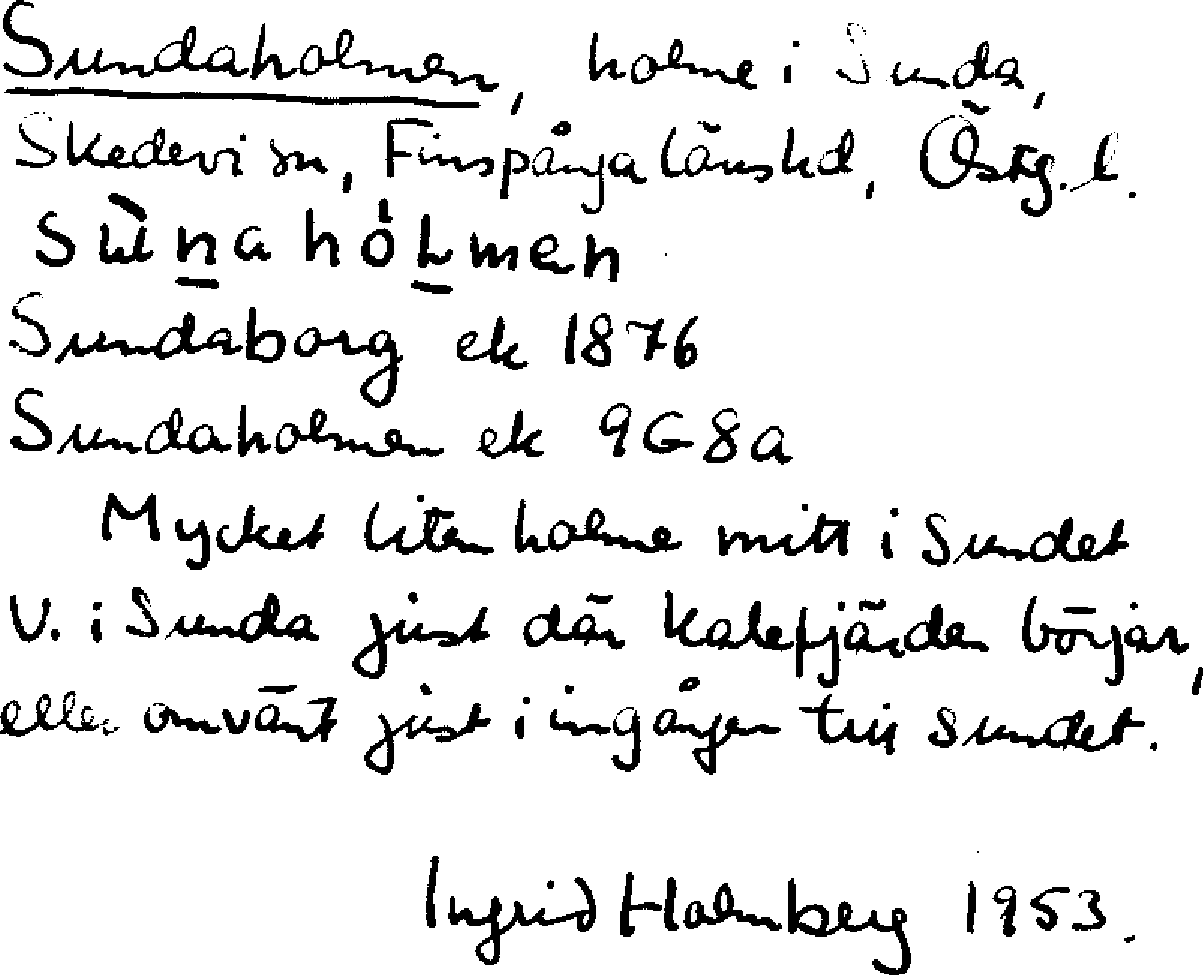 Sundaholmen, holme i Sunda,
Skedevi sn, Finspånga länshd, Östg. l.
sùnahólmen
Sundaborg ek 1876
Sundaholmen ek 9G8a
Mycket liten holme mitt i Sundet
V. i Sunda just där Kalefjärden börjar,
eller omvänt just i ingången till Sundet.
Ingrid Holmberg 1953.